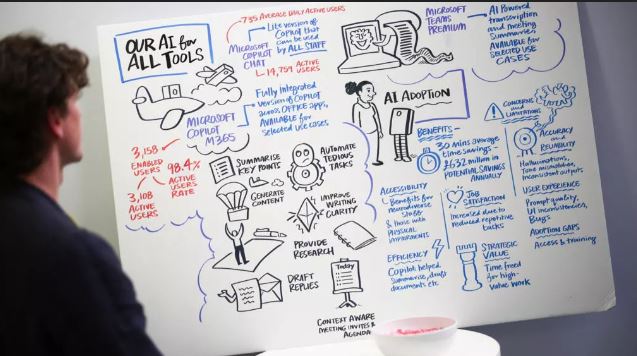 OUR AI for
ALL TOOLS
735 AVERAGE DAILY ACTIVE USERS
MICROSOFT
COPILOT
CHAT
Lite version of
COPILOT that
can be used
by ALL STAFF
14,759 ACTIVE
USERS
MICROSOFT
COPILOT
M365
Fully integrated
version of COPILOT
across OFFICE apps,
AVAILABLE for
selected use cases
3,158
ENABLED
USERS
98.4%
ACTIVE
USERS
RATE
3,108
ACTIVE
USERS
SUMMARISE
KEY POINTS
AUTOMATE
TEDIOUS
TASKS
GENERATE
CONTENT
IMPROVE
WRITING
CLARITY
PROVIDE
RESEARCH
DRAFT
REPLIES
Today
CONTEXT AWARE
MEETING INVITES &
AGENDA
MICROSOFT
TEAMS
PREMIUM
AI POWERED
transcription
and meeting
Summaries
AVAILABLE for
SELECTED USE
CASES
AI ADOPTION
BENEFITS –
30 mins average
time savings –
£632 million in
POTENTIAL SAVINGS
ANNUALLY
ACCESSIBILITY
Benefits for
neurodiverse
staff
& those with
PHYSICAL
IMPAIRMENTS
JOB
SATISFACTION
Increased due to
reduced repetitive
tasks
EFFICIENCY
Copilot helped
summarise, draft
documents etc
STRATEGIC
VALUE
Time freed
for high-
value work
CONCERNS
and
LIMITATIONS
ACCURACY
and
RELIABILITY
Hallucinations,
Tone mismatches,
Inconsistent outputs
USER EXPERIENCE
Prompt quality,
UI inconsistencies,
Bugs
ADOPTION GAPS
Access & training